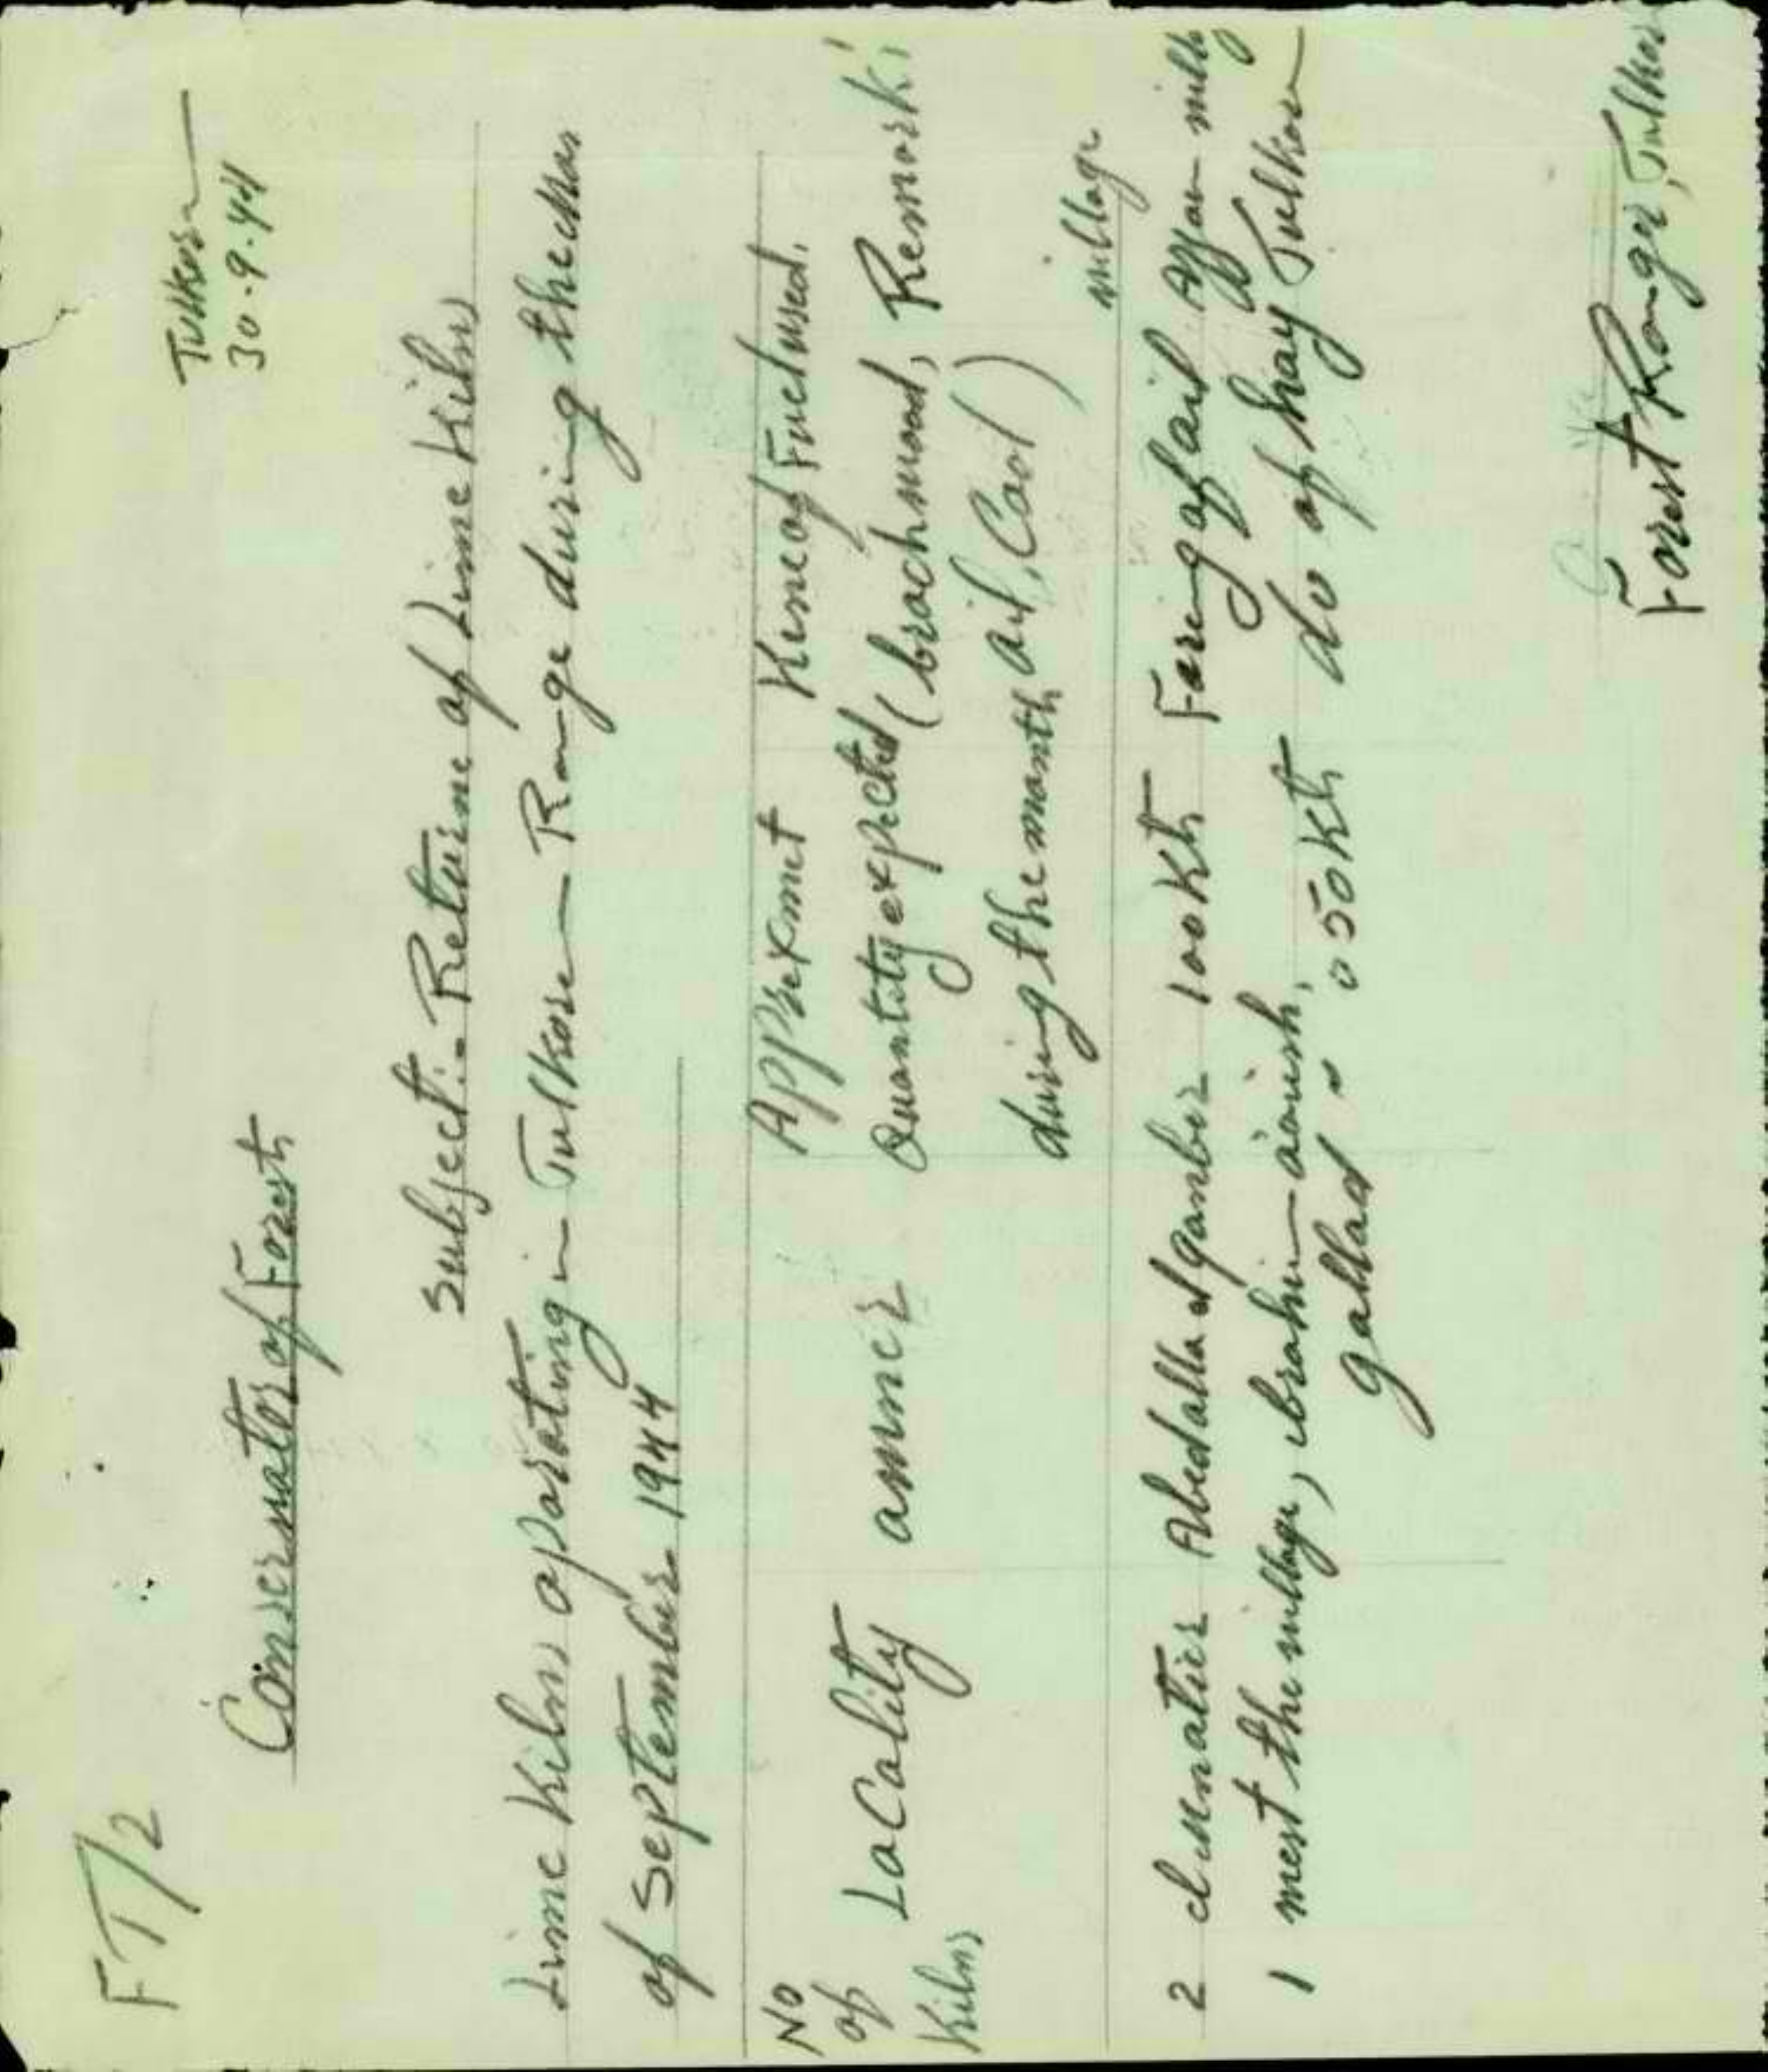 FT/2
Tulkarm
30-9-44
Conservator of Forests
Subject:- Returne of Lime Kilns
Lime Kilns oporating in Tulkarem Range during the
of September 1944
No of Kilns
Locality
owner
Apprexmet Quantity expected during the month
Kine of Fuel used. (brochwood, oil, Cool)
Remarks
village
2 Abedalla 100 Kts Faring of oil
1 west the village, ibrahim 50 Kts do of hay Tulkarm
Forest Ranger, Tulkarm